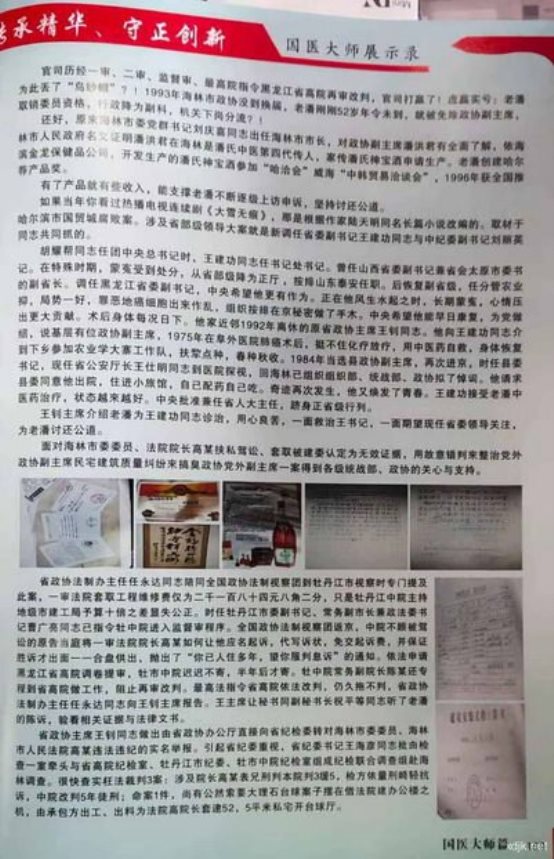 传承精华、守正创新
国医大师展示录
官司历经一审、二审、监督审、最高院指令黑龙江省高院再审改判，官司打赢了！虚赢实亏；老潘
为此丢了“乌纱帽”？！1993年海林市政协没到换届，老潘刚刚52岁年令未到，就被免除政协副主席，
取销委员资格，行政降为副科，机关下岗分流？！
还好，原来海林市委党群书记刘庆嘉同志出任海林市市长，对政协副主席潘洪君有全面了解，依海
林市人民政府名文证明潘洪君在海林是潘氏中医第四代传人，家传潘氏神宝酒申请生产。老潘创建哈尔
滨金龙保健品公司，开发生产的潘氏神宝酒参加“哈洽会”威海“中韩贸易洽谈会”，1996年获全国推
荐产品奖。
有了产品就有些收入，能支撑老潘不断逐级上访申诉，坚持讨还公道。
如果当年你看过热播电视连续剧《大雪无痕》，那是根据作家陆天明同名长篇小说改编的。取材于
哈尔滨市国贸城腐败案。涉及省部级领导大案就是新调任省委副书记王建功同志与中纪委副书记刘丽英
同志共同抓的。
胡耀帮同志任团中央总书记时、王建功同志任书记处书记。曾任山西省委副书记兼省会太原市委书
记。在特殊时期，蒙冤受到处分，从省部级降为正厅，按排山东泰安任职。后恢复副省级，任分管农业
的副省长。调任黑龙江省委副书记，中央希望他更有作为。正在他风生水起之时，长期蒙冤，心情压
抑，局势一好，罪恶地癌细胞出来作乱，组织按排在京秘密做了手术，中央希望他能早日康复，为党做
出更大贡献。术后身体每况日下。他家近邻1992年离休的原省政协主席王钊同志。他向王建功同志介
绍，说基层有位政协副主席，1975年在阜外医院肺癌术后，挺不住化疗放疗，用中医药自救，身体恢复
到下乡参加农业学大寨工作队，扶犂点种，春种秋收。1984年当选县政协副主席，再次进京，时任县委
书记，现任省公安厅长王仕明同志到医院探视，回海林已组织组织部、统战部、政协拟了悼词。他请求
县委同意他出院，住进小旅馆，自己配药自己吃。奇迹再次发生，他又焕发了青春。王建功接受老潘中
医药治疗，状态越来越好。中央批准兼任省人大主任，跻身正省级行列。
王钊主席介绍老潘为王建功同志诊治，用心良苦，一面救治王书记，一面期望现任省委领导关注，
为老潘讨还公道。
面对海林市委委员、法院院长高某挟私駡讼、套取被建委认定为无效证据，用故意错判来整治党外
政协副主席民宅建筑质量纠纷来搞臭政协党外副主席一案得到各级统战部、政协的关心与支持。
省政协法制办主任任永达同志陪同全国政协法制视察团到牡丹江市视察时专门提及
此案，一审法院套取工程维修费仅为二千一百八十四元八角二分，只是牡丹江中院主持
地级市建工局予算十倍之差显失公正。时任牡丹江市委副书记、常务副市长兼政法委书
记曹广亮同志已指令牡中院进入监督审程序。全国政协法制视察团返京，中院不顾被駡
讼的原告当庭将一审法院院长高某如何让他应名起诉，代写诉状，免交起诉费，并保证
胜诉才出面一一合盘供出，抛出了“你已人住多年，望你服判息诉”的通知。依法申请
黑龙江省高院调卷提审，牡市中院迟迟不寄，半年后才寄。牡中院常务副院长陈某还专
程到省高院做工作，阻止再审改判。最高法指令省高院依法改判，仍久拖不判，省政协
法制办主任任永达同志向王钊主席报告。王主席让秘书同副秘书长倪平等同志听了老潘
的陈诉，验看相关证据与法律文书。
省政协主席王钊同志做出由省政协办公厅直接向省纪检委转对海林市委委员、海林
市人民法院高某违法违纪的实名举报。引起省纪委重视，省纪委书记王海彦同志批由检
查一室牵头与省高院纪检室、牡丹江市纪委、牡市中院纪检室组成纪检联合调查组赴海
林调查。很快查实枉法裁判3案：涉及院长高某表兄刑判本院判3缓5，检方依量刑畸轻抗
诉，中院改判5年徒刑；命案1件，尚有公然索要大理石台球案子摆在借法院建办公楼之
机，由承包方出工、出料为法院高院长套建52，5平米私宅开台球厅。
国医大师篇